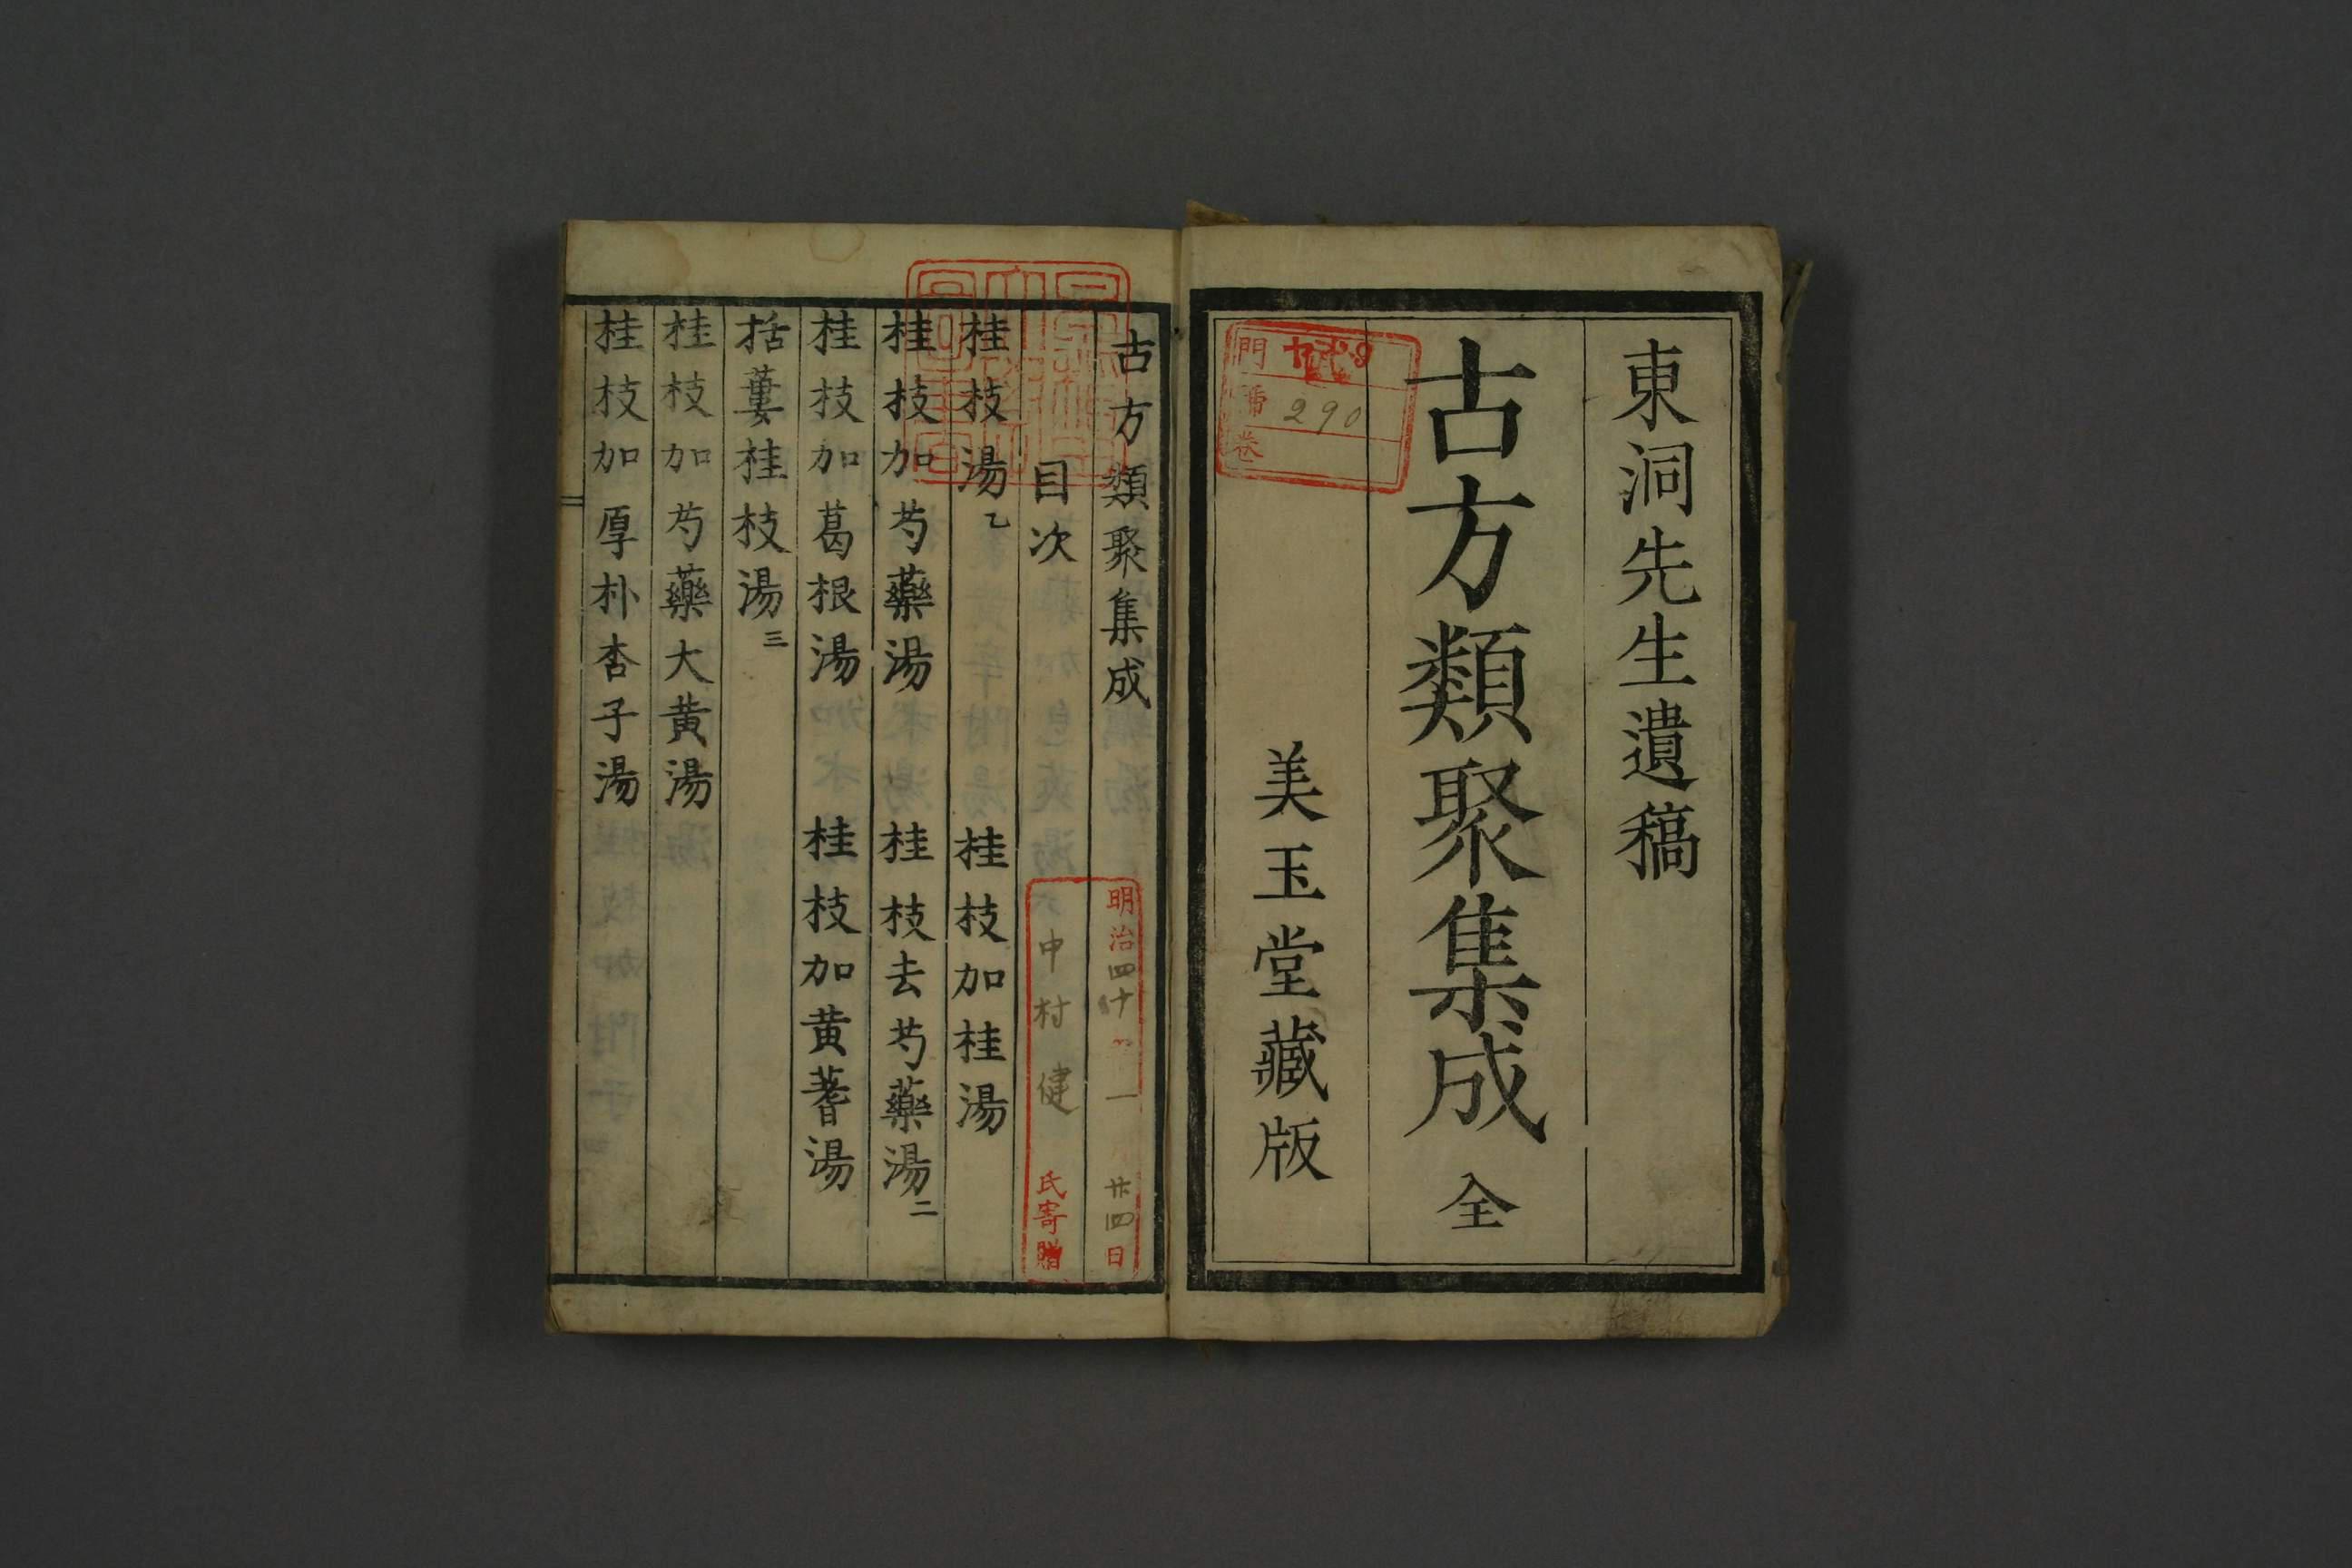 東洞先生遺稿
古方類聚集成 全
美玉堂藏版
門
號 290
卷
古方類聚集成
目次
桂枝湯乙 桂枝加桂湯
桂枝加芍藥湯 桂枝去芍藥湯二
桂枝加葛根湯 桂枝加黄蓍湯
括蔞桂枝湯三
桂枝加芍藥大黄湯
桂枝加厚朴杏子湯
明治四十 一 廿四日
中村健 氏寄贈